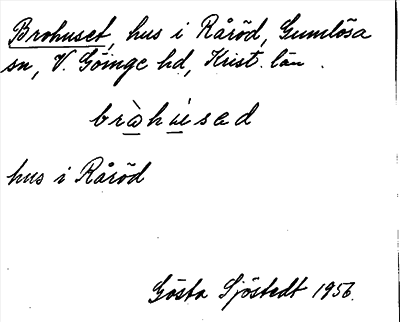 Brohuset, hus i Råröd, Gumlösa
sn, V. Göinge hd, Krist. län.
bràhúsed
hus i Råröd
Gösta Sjöstedt 1956.